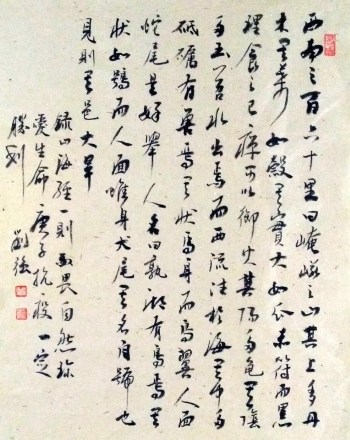 西南三百六十里曰崦嵫之山其上多丹
木其葉如穀其實大如瓜赤符而黑
理食之已癉可以御火其陽多龜其陰
多玉苕水出焉而西流注于海其中多
砥礪有獸焉其狀馬身而鳥翼人面
蛇尾是好舉人名曰孰湖有鳥焉其
狀如鴞而人面蜼身犬尾其名自號也
見則其邑大旱
錄山海經一則敬畏自然珍
愛生命庚子抗疫一定
勝利
劉強